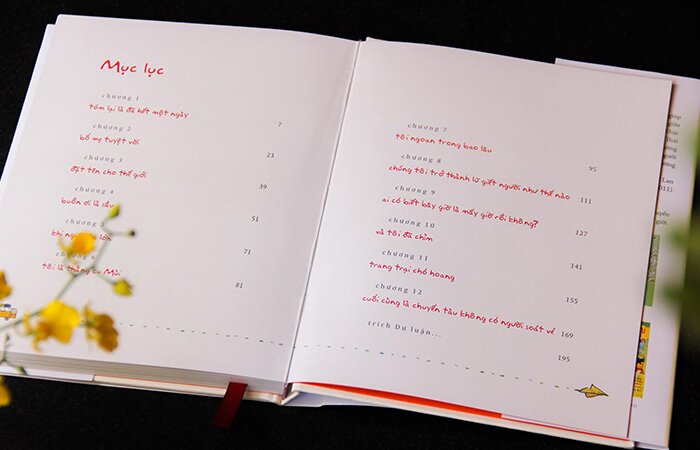 Mục lục
chương 1
tóm lại là đã hết một ngày 7
chương 2
bố mẹ tuyệt vời 23
chương 3
đặt tên cho thế giới 39
chương 4
buồn ơi là sầu 51
chương 5
khi người lớn 71
chương 6
tôi là thằng cu Mùi 81
chương 7
tôi ngoan trong bao lâu 95
chương 8
chúng tôi trở thành lũ giết người như thế nào 111
chương 9
ai có biết bây giờ là mấy giờ rồi không? 127
chương 10
và tôi đã chìm 141
chương 11
trang trại chó hoang 155
chương 12
cuối cùng là chuyến tàu không có người soát vé 169
trích Dư luận... 195